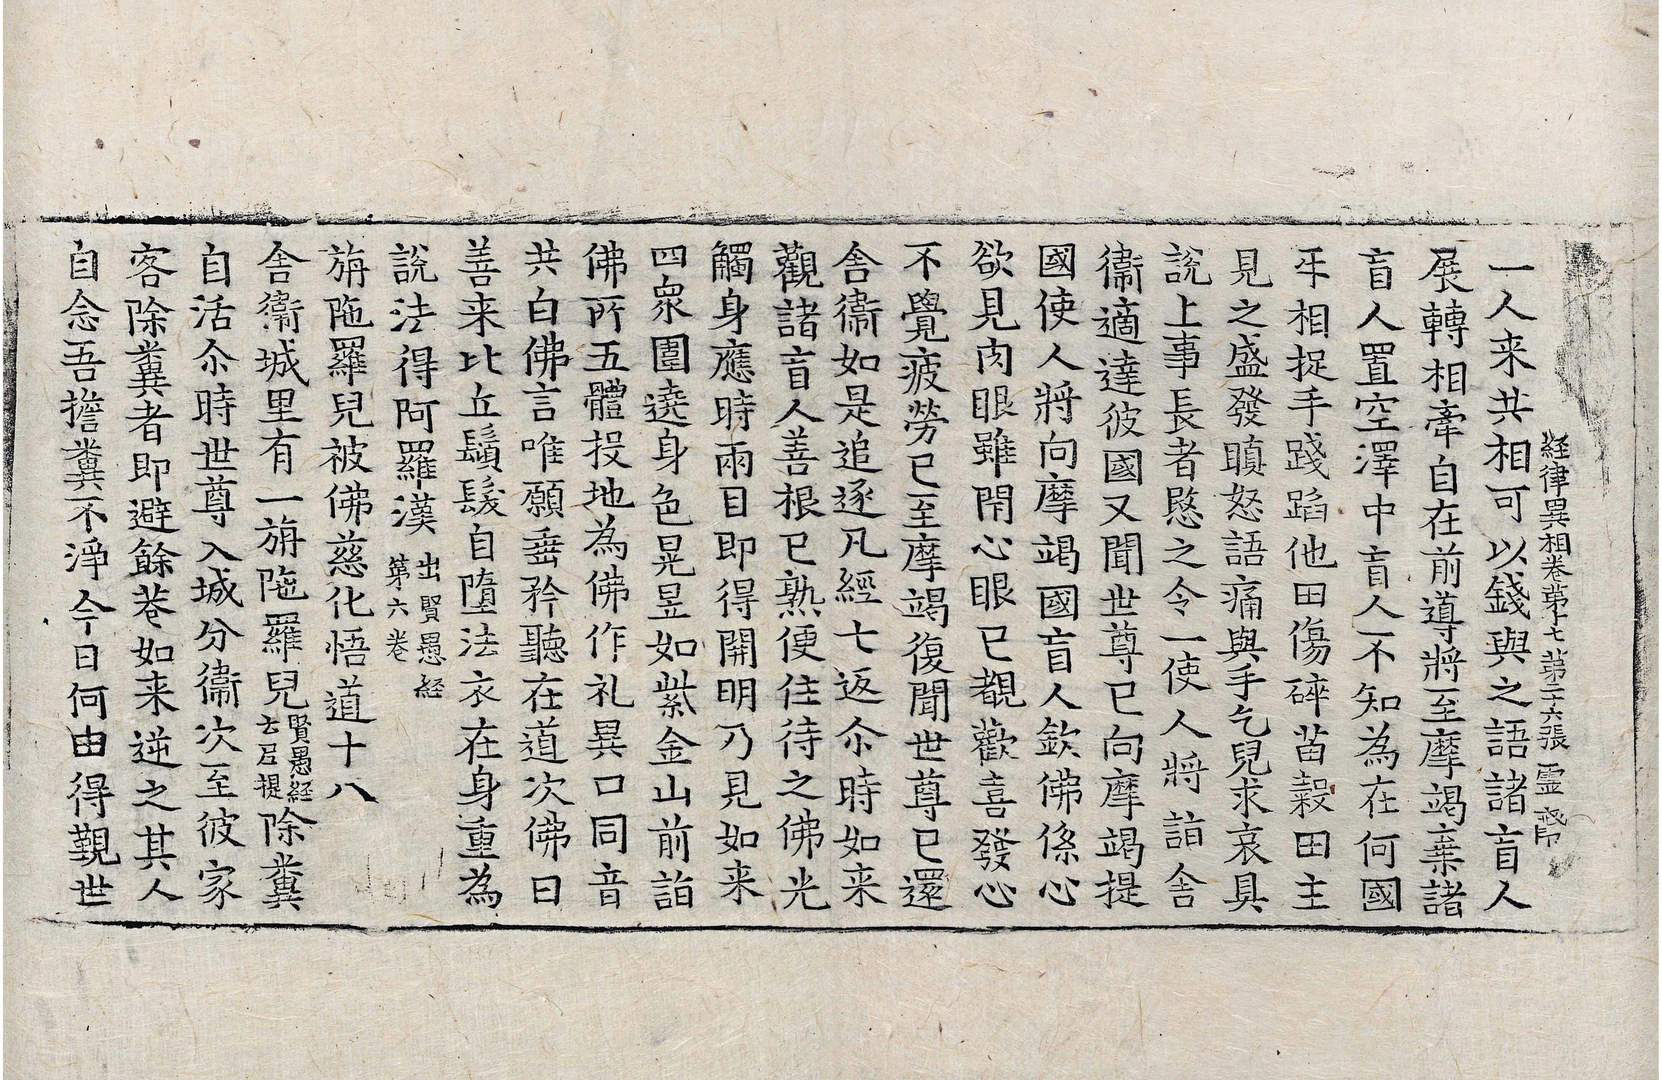 經律異相卷第十七 第二十六張 靈
一人来共相可以錢與之語諸盲人
展轉相牽自在前導將至摩竭棄諸
盲人置空澤中盲人不知為在何國
互相捉手踐蹈他田傷碎苗穀田主
見之盛發瞋怒語痛與手乞兒求哀具
說上事長者愍之令一使人將詣舍
衞適達彼國又聞世尊已向摩竭提
國使人將向摩竭國盲人欽佛係心
欲見肉眼雖閇心眼已覩歡喜發心
不覺疲勞已至摩竭復聞世尊已還
舍衞如是追逐凡經七返尒時如来
觀諸盲人善根已熟便住待之佛光
觸身應時兩目即得開明乃見如来
四衆圍遶身色晃昱如紫金山前詣
佛所五體投地為佛作礼異口同音
共白佛言唯願垂矜聽在道次佛曰
善来比丘鬚髮自墮法衣在身重為
說法得阿羅漢 出賢愚経第六卷
旃陁羅兒被佛慈化悟道十八
舍衞城里有一旃陁羅兒 賢愚経云尼提 除糞
自活尒時世尊入城分衞次至彼家
客除糞者即避餘巷如来逆之其人
自念吾擔糞不淨今日何由得觀世